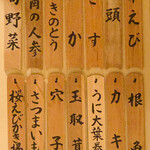 えび
頭
きす
か
きのとう
の人参
野菜
根
カキ
うに大葉巻
玉取茸
穴子
さつまいも
桜えびかき揚